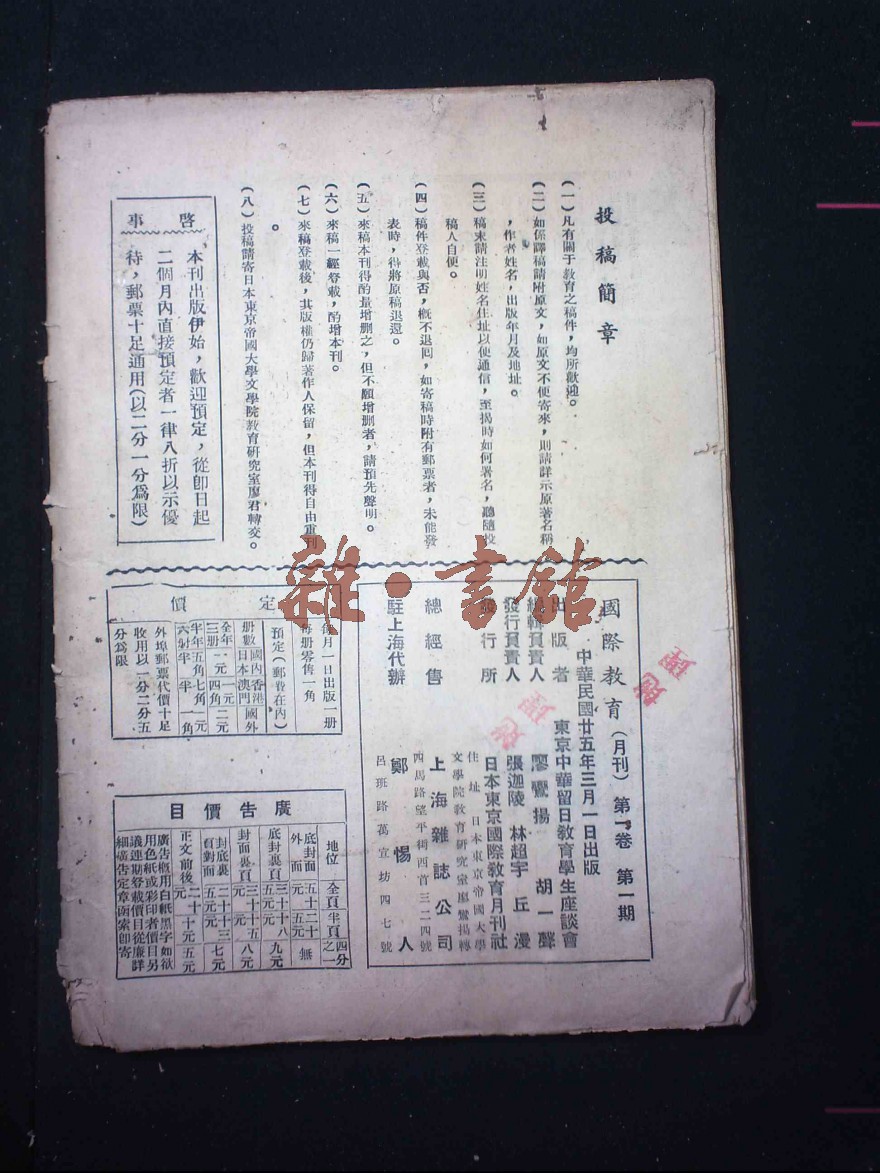 投稿簡章
(一)凡有關于教育之稿件，均所歡迎。
(二)如係譯稿請附原文，如原文不便寄來，則請詳示原著名稱
，作者姓名，出版年月及地址。
(三)稿末請注明姓名住址以便通信，至揭時如何署名，聽隨投
稿人自便。
(四)稿件登載與否，概不退囘，如寄稿時附有郵票者，未能發
表時，得將原稿退還。
(五)來稿本刊得酌量增删之，但不願增删者，請預先聲明。
(六)來稿一經登載，酌增本刊。
(七)來稿登載後，其版權仍歸著作人保留，但本刊得自由重刊
。
(八)投稿請寄日本東京帝國大學文學院教育研究室廖君轉交。
啓事
本刊出版伊始，歡迎預定，從卽日起
二個月內直接預定者一律八折以示優
待，郵票十足通用(以二分一分爲限)
雜·書館
國際教育(月刊)第一卷 第一期
中華民國廿五年三月一日出版
出版者 東京中華留日教育學生座談會
總輯負責人 廖鸞揚 胡一聲
發行負責人 張迦陵 林超宇 丘漫
發行所 日本東京國際教育月刊社
住址 日本東京帝國大學
文學院教育研究室廖鸞揚轉
總經售 上海雜誌公司
四馬路望平街西首三二四號
駐上海代辦 鄭惕人
呂班路萬宜坊四七號
定價
每月一日出版一册
每册零售一角
預定(郵費在內)
册數 國內日本 香港澳門 國外
全年
半年
外埠郵票代價十足
收用以一分二分五
分爲限
廣告價目
地位 全頁 半頁 四分之一
底封面外面 五十元 二十五元 無
底封裏頁 三十元 十八元 九元
封面裏頁 三十元 十五元 八元
封底裏頁對面 二十五元 十三元 七元
正文前後 二十元 十元 五元
廣告概用白紙黑字如欲
用色紙或彩印者價目另
議連期登載價目從廉詳
細廣告定章函索卽寄